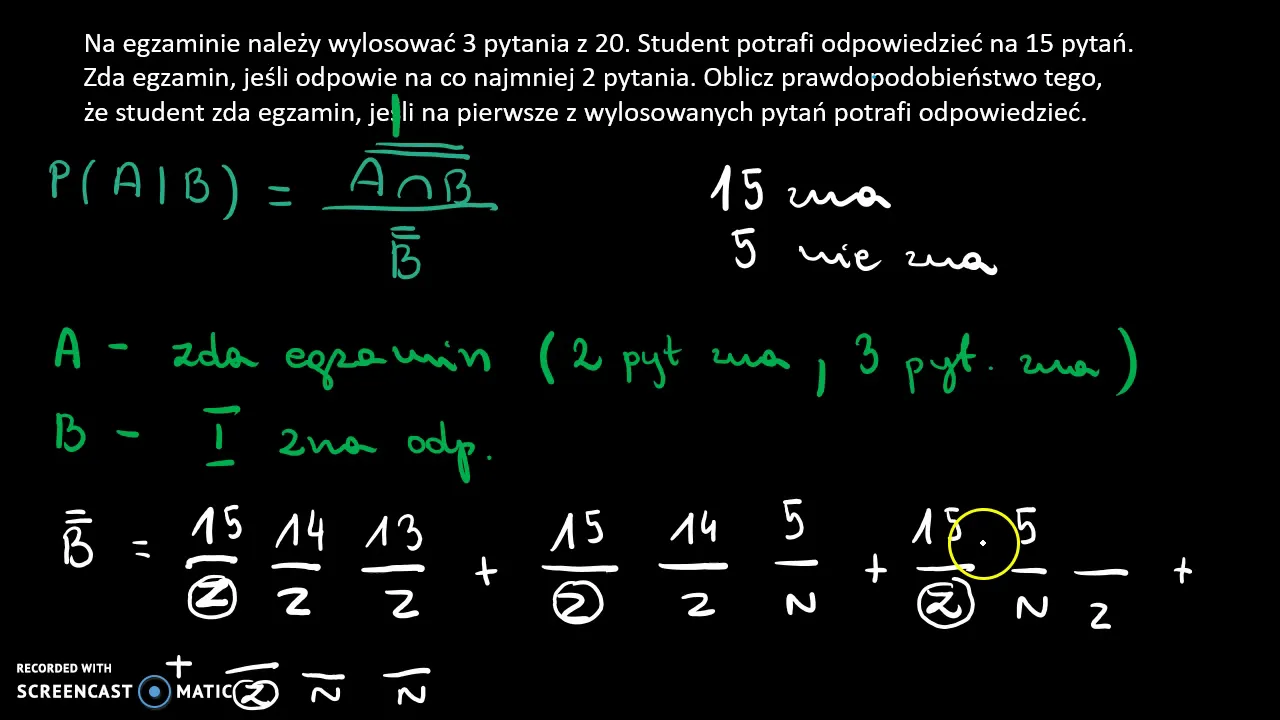 Na egzaminie należy wylosować 3 pytania z 20. Student potrafi odpowiedzieć na 15 pytań.
Zda egzamin, jeśli odpowie na co najmniej 2 pytania. Oblicz prawdopodobieństwo tego,
że student zda egzamin, jeśli na pierwsze z wylosowanych pytań potrafi odpowiedzieć.
P(A|B) = A∩B / B
15 zna
5 nie zna
A - zda egzamin (2 pyt zna, 3 pyt. zna)
B - I zna odp.
B = 15 14 13 + 15 14 5 + 15 5 +
Z Z Z Z Z N Z N Z
RECORDED WITH +
SCREENCAST MATIC Z N N